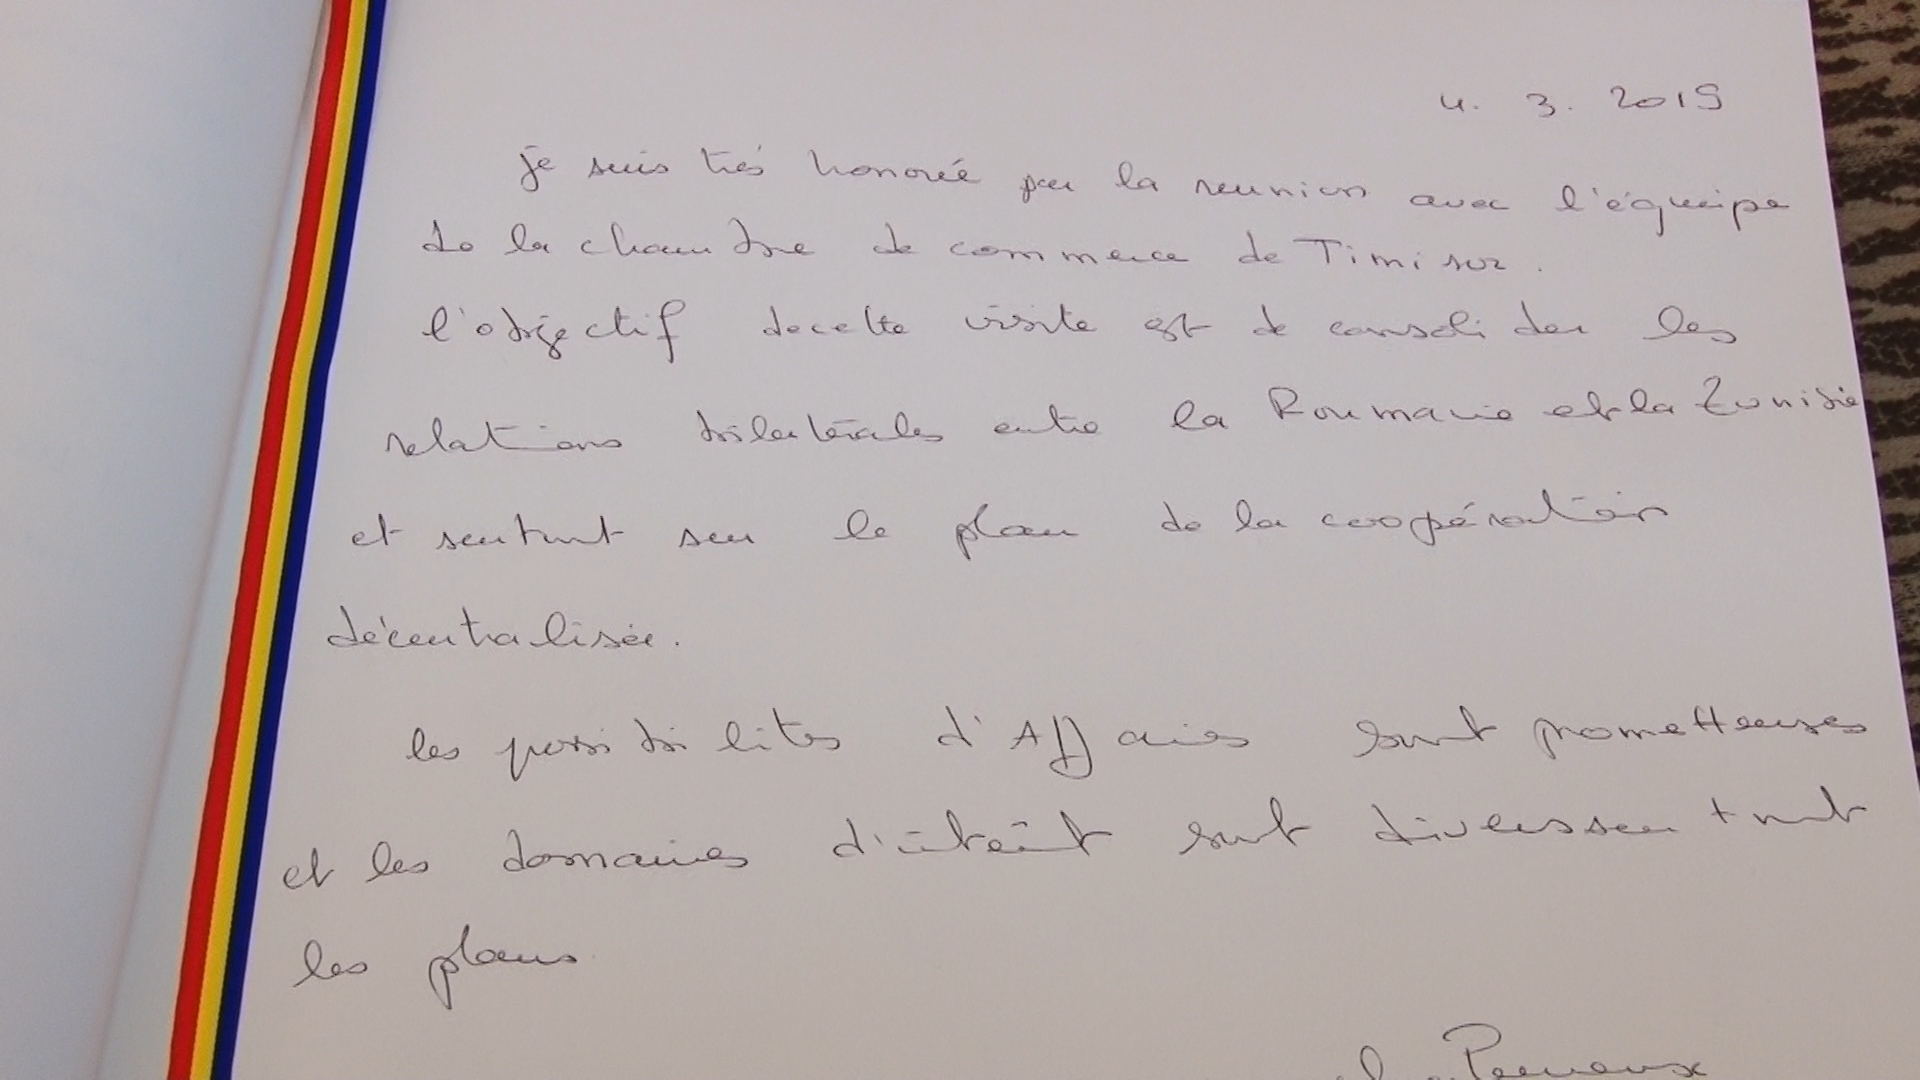 4. 3. 2019
je suis trés honorée par la reunion avec l'équipe
de la chambre de commerce de Timisor.
l'objectif de cette visite est de consolider les
relations bilatérales entre la Roumanie et la Tunisie
et surtout sur le plan de la coopération
décentralisée.
les possibilités d'Affaires sont prometteuses
et les domaines d'intérêt sont divers sur tout
les plans